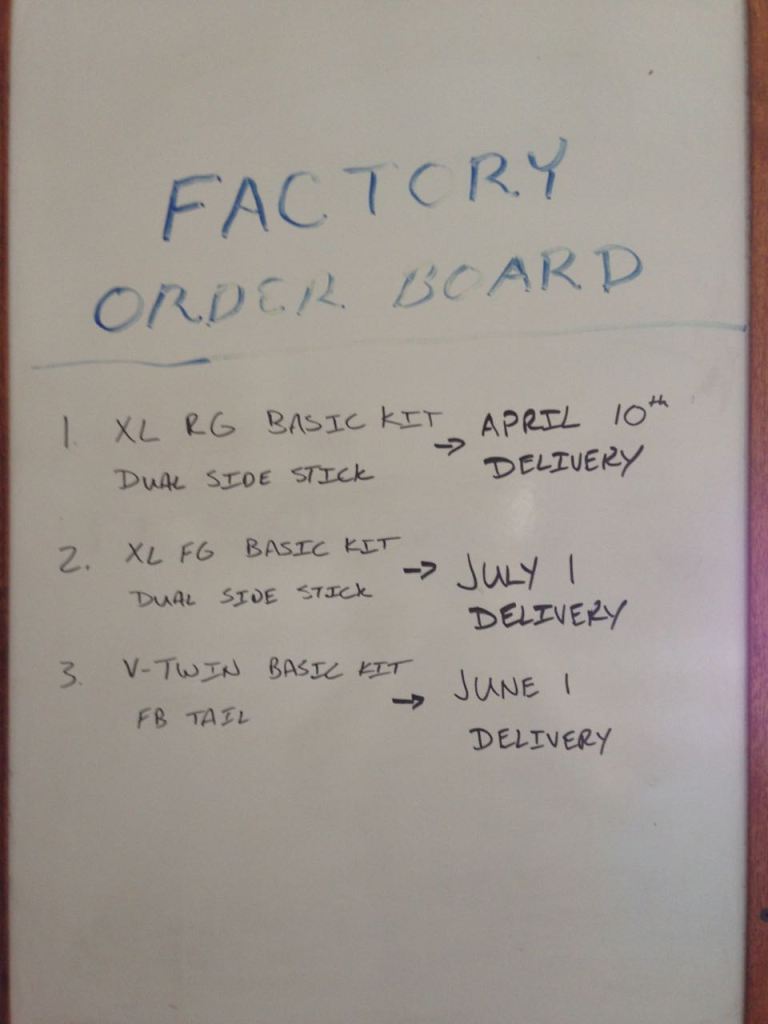 FACTORY
ORDER BOARD
1. XL RG BASIC KIT → APRIL 10th
DUAL SIDE STICK DELIVERY
2. XL FG BASIC KIT → JULY 1
DUAL SIDE STICK DELIVERY
3. V-TWIN BASIC KIT → JUNE 1
FB TAIL DELIVERY